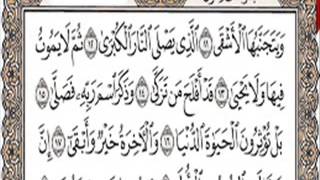 وَيَتَجَنَّبُهَا ٱلْأَشْقَى ١١ ٱلَّذِى يَصْلَى ٱلنَّارَ ٱلْكُبْرَىٰ ١٢ ثُمَّ لَا يَمُوتُ
فِيهَا وَلَا يَحْيَىٰ ١٣ قَدْ أَفْلَحَ مَن تَزَكَّىٰ ١٤ وَذَكَرَ ٱسْمَ رَبِّهِۦ فَصَلَّىٰ ١٥
بَلْ تُؤْثِرُونَ ٱلْحَيَوٰةَ ٱلدُّنْيَا ١٦ وَٱلْـَٔاخِرَةُ خَيْرٌ وَأَبْقَىٰٓ ١٧ إِنَّ